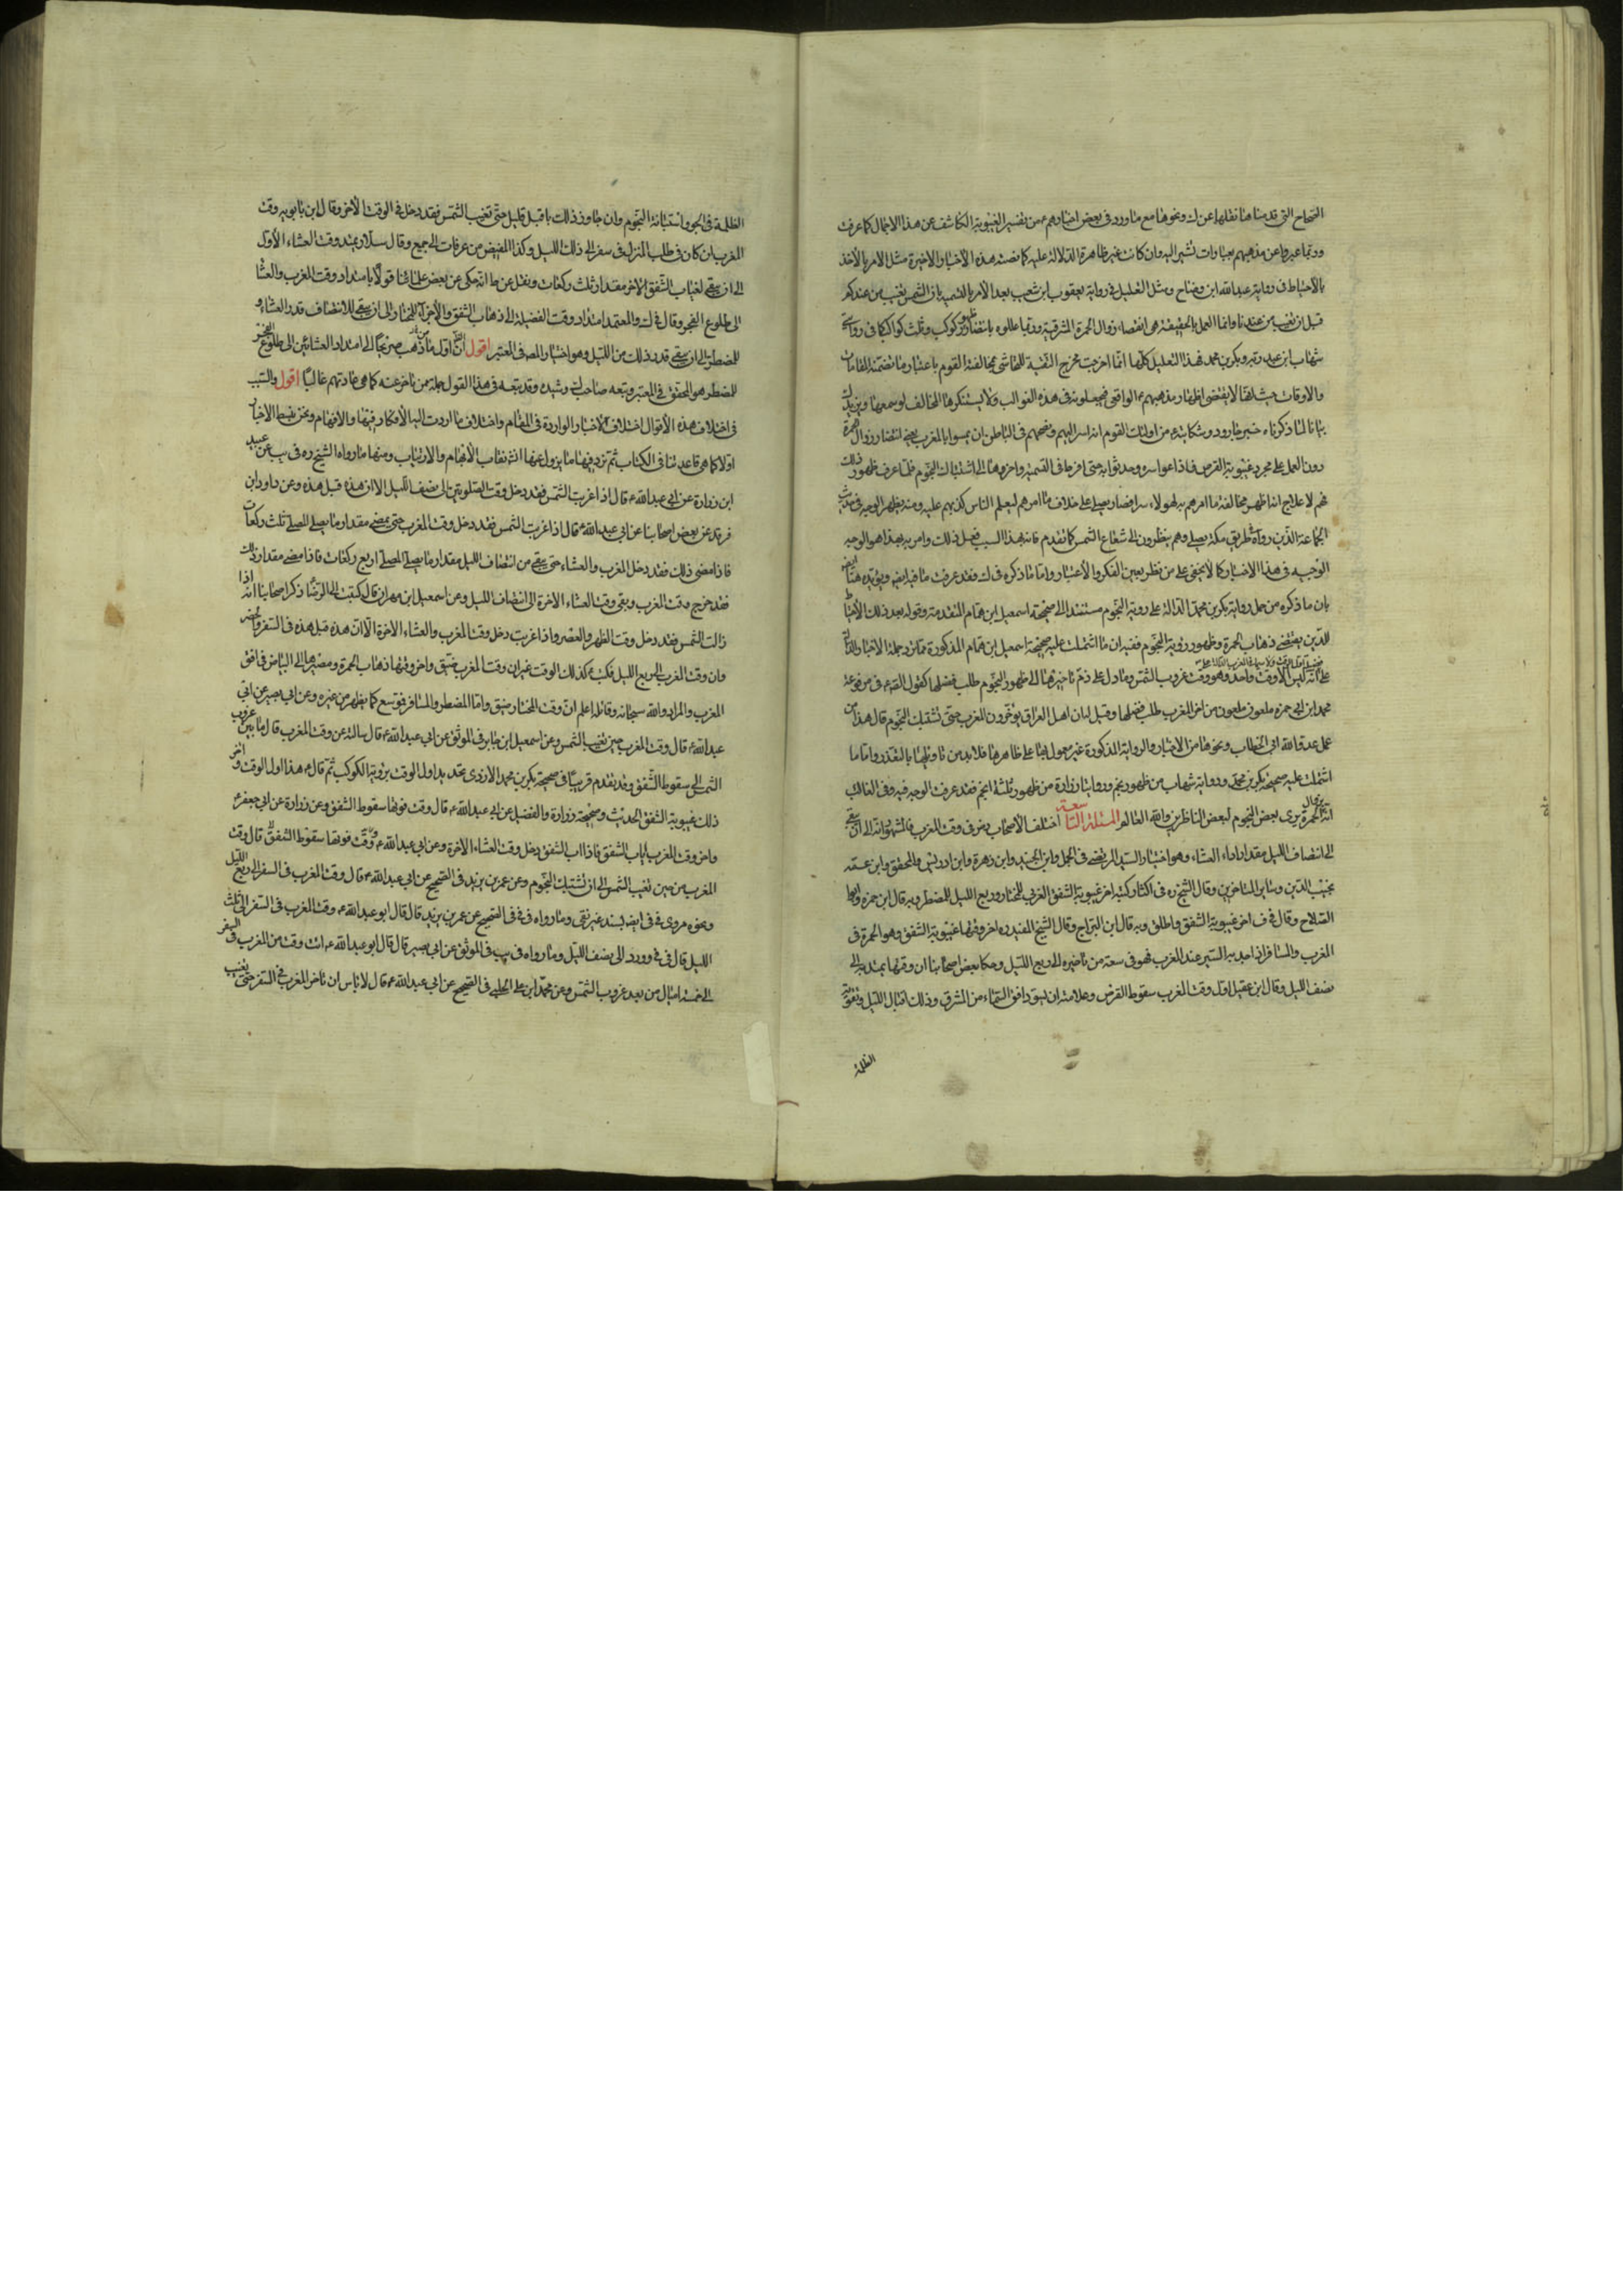 الصحاح التي قدمنا هنا نقلها عن ك ونحوها مع ما ورد في بعض اخبارهم ع من تفسير الغيبوبة الكاشف عن هذا الاجمال كما عرفت
وربما عبروا عن مذهبهم بعبارات تشير اليه وان كانت غير ظاهرة الدلالة عليه كما تضمنته هذه الاخبار الاخيرة مثل الامر بالأخذ
بالاحتياط في رواية عبد الله ابن وضاح ومثل التعليل في رواية يعقوب ابن شعيب بعد الامر بالتمسية بان الشمس تغيب من عندكم
قبل ان تغيب من عندنا وانما العمل بالحقيقة هي انقضاء زوال الحمرة المشرقية وربما عللوه بانتظار ظهور كوكب وثلث كواكب كما في رواية
شهاب ابن عبد ربه وبكر بن محمد فهذه التعليل كلها انما اخرجت مخرج التقية للتحاشي مخالفة القوم باعتبار ما تضمنته المقامات
والاوقات حيث انها لا يقتضي اظهار مذهبهم ع الواقعي فيجعلونه في هذه القوالب ولا يستنكرها المخالف لو سمعها ويزيدك
بيانا لما ذكرناه خبر جارود وشكايته ع من اولئك القوم انه اسر اليهم ونصحهم في الباطن ان يمسوا بالمغرب يعني انتظار زوال الحمرة
دون العمل على مجرد غيبوبة القرص فاذاعوا سره وحدثوا به حتى افرطوا في التمسية واخروها الى اشتباك النجوم فلما عرف ظهور ذلك
عنهم لا علاج انه اظهر مخالفة ما امرهم به لهولاء فصار يصلي على خلاف ما امرهم ليعلم الناس كذبهم عليه ومنه يظهر الوجه في حديث
الجماعة الذين رواه بطريق مكة يصلي وهم ينظرون الى شعاع الشمس كما تقدم فانه لهذا السبب فعل ذلك وامر به بهذا هو الوجه
الوجيه في هذا الاخبار كما لا يخفى على من نظر بعين الفكر والاعتبار واما ما ذكره في ك فقد عرفت ما فيه ايضا ويؤيده هنا
بان ما ذكره من حمل رواية بكر بن محمد الدالة على روية النجوم مستندا الى صحيحة اسمعيل ابن همام المتقدمة وقوله بعد ذلك الاحتياط
للدين يقتضي ذهاب الحمرة وظهور روية النجوم ففيه ان ما اشتملت عليه صحيحة اسمعيل ابن همام المذكورة
على انه ليس لا وقت واحد وهو وقت غروب الشمس وما دل على ذم تاخيرها الى ظهور النجوم طلب فضلها كقول الصم ع في مرفوعة
محمد ابن ابي حمزه ملعون ملعون من اخر المغرب طلب فضلها وقيل له ان اهل العراق يؤخرون المغرب حتى تشتبك النجوم قال هذا من
عمل عدو الله ابي الخطاب ونحوهما من الاخبار والرواية المذكورة غير معمول بها على ظاهرها فلا بد من تاويلها بالتعذر واما ما
اشتملت عليه صحيحة بكر بن محمد ورواية شهاب من ظهور نجم وروايتا زرارة من ظهور ثلثة انجم فقد عرفت الوجه فيه وفي الغالب
انه بزوال الحمرة يرى بعض النجوم لبعض الناظرين والله العالم المسئلة التاسعة اختلف الاصحاب رض في وقت المغرب فالمشهور انه الى ان يبقى
الى انتصاف الليل مقدار اداء العشاء وهو اختيار السيد المرتضى في الجمل وابن الجنيد وابن زهرة وابن ادريس والمحقق وابن عمه
نجيب الدين وساير المتاخرين وقال الشيخ ره في اكثر كتبه اخره غيبوبة الشفق الغربي للمختار وربع الليل للمضطر وبه قال ابن حمزه وابو
الصلاح وقال في ف اخره غيبوبة الشفق واطلق وبه قال ابن البراج وقال الشيخ المفيد ره اخر وقتها غيبوبة الشفق وهو الحمرة في
المغرب والمسافر اذا جد به السير عند المغرب فهو في سعة من تاخيره الى ربع الليل وحكا بعض اصحابنا ان وقتها يمتد الى
نصف الليل وقال ابن عقيل اول وقت المغرب سقوط القرص وعلامته ان يسود افق السماء من المشرق وذلك اقبال الليل وتقوية
الظلمة
الظلمة في الجو واشتباك النجوم وان جاوز ذلك باقل قليل حتى تغيب الشمس فقد دخل في الوقت الاخر وقال ابن بابويه وقت
المغرب لمن كان في طلب المنزل في سفر الى ذلك الليل وكذا المفيض من عرفات الى جمع وقال سلار يمتد وقت العشاء الأول
الى ان يبقى لغياب الشفق الاخر مقدار ثلث ركعات ونقل عن ط انه حكى عن بعض علمائنا قولا بامتداد وقت المغرب والعشا
الى طلوع الفجر وقال في ك والمعتمد امتداد وقت الفضيلة الى ذهاب الشفق والاجزآ للمختار الى ان يبقى للانتصاف قدر العشاء و
للمضطر الى ان يبقى قدر ذلك من الليل وهو اختيار المصر في المعتبر اقول ان اول من ذهب صريحا الى امتداد العشائين الى طلوع الفجر
للمضطر هو المحقق في المعتبر وتبعه صاحب ك وشيده وقد تبعه في هذا القول جملة من تاخر عنه كما هي عادتهم غالبا اقول والسبب
في اختلاف هذه الأقوال اختلاف الاخبار الواردة في المقام واختلاف ما اردت اليه الأفكار فيها والافهام ونحن نبسط الاخبار
اولا كما هي قاعدتنا في الكتاب ثم نردفها ما يزول عنها انشا نقاب الأبهام والارتياب ومنها ما رواه الشيخ ره في يب عن عبيد
ابن زرارة عن ابي عبد الله ع قال اذا غربت الشمس فقد دخل وقت الصلوتين الى نصف الليل الا ان هذه قبل هذه وعن داود ابن
فرقد عن بعض اصحابنا عن ابي عبد الله ع قال اذا غربت الشمس فقد دخل وقت المغرب حتى يمضي مقدار ما يصلي المصلي ثلث ركعات
فاذا مضى ذلك فقد دخل المغرب والعشاء حتى يبقى من انتصاف الليل مقدار ما يصلي المصلي اربع ركعات فاذا مضى مقدار ذلك
فقد خرج وقت المغرب وبقى وقت العشاء الاخرة الى انتصاف الليل وعن اسمعيل ابن مهران قال كتبت الى الرضا ذكر اصحابنا انه اذا
زالت الشمس فقد دخل وقت الظهر والعصر واذا غربت دخل وقت المغرب والعشاء الاخرة الا ان هذه قبل هذه في السفر والحضر
وان وقت المغرب الى ربع الليل فكتب ع كذلك الوقت غير ان وقت المغرب ضيق واخر وقتها ذهاب الحمرة ومصيرها الى البياض في افق
المغرب والمراد والله سبحانه وقائله اعلم ان وقت المختار ضيق واما المضطر والمسافر فتوسع كما يظهر من غيره وعن ابي بصير عن ابي
عبد الله ع قال وقت المغرب حين تغيب الشمس وعن اسمعيل ابن جابر في الموثق عن ابي عبد الله ع قال سالته عن وقت المغرب قال ما بين غروب
الشمس الى سقوط الشفق وقد تقدم قريبا في صحيحة بكر بن محمد الازدي تحديد اول الوقت بروية الكوكب ثم قال ع هذا اول الوقت واخر
ذلك غيبوبة الشفق الحديث وصحيحة زرارة والفضيل عن ابي عبد الله ع قال وقت فوتها سقوط الشفق وعن زرارة عن ابي جعفر ع
واخر وقت المغرب اياب الشفق فاذا اب الشفق دخل وقت العشاء الاخرة وعن ابي عبد الله ع وقت فوتها سقوط الشفق قال وقت
المغرب من حين تغيب الشمس الى ان تشتبك النجوم وعن عمر بن يزيد في الصحيح عن ابي عبد الله ع قال وقت المغرب في السفر الى ربع الليل
ونحوه مروى في في ايضه بسند غير نقي وما رواه في في في الصحيح عن عمر بن يزيد قال قال ابو عبد الله ع وقت المغرب في السفر الى ثلث
الليل قال في في وورد الى نصف الليل وما رواه في يب في الموثق عن ابي بصير قال قال ابو عبد الله ع انت وقت من المغرب في السفر
الى خمسة اميال من بعد غروب الشمس وعن محمد ابن علي الحلبي في الصحيح عن ابي عبد الله ع قال لا باس ان تاخر المغرب في السفر حتى يغيب